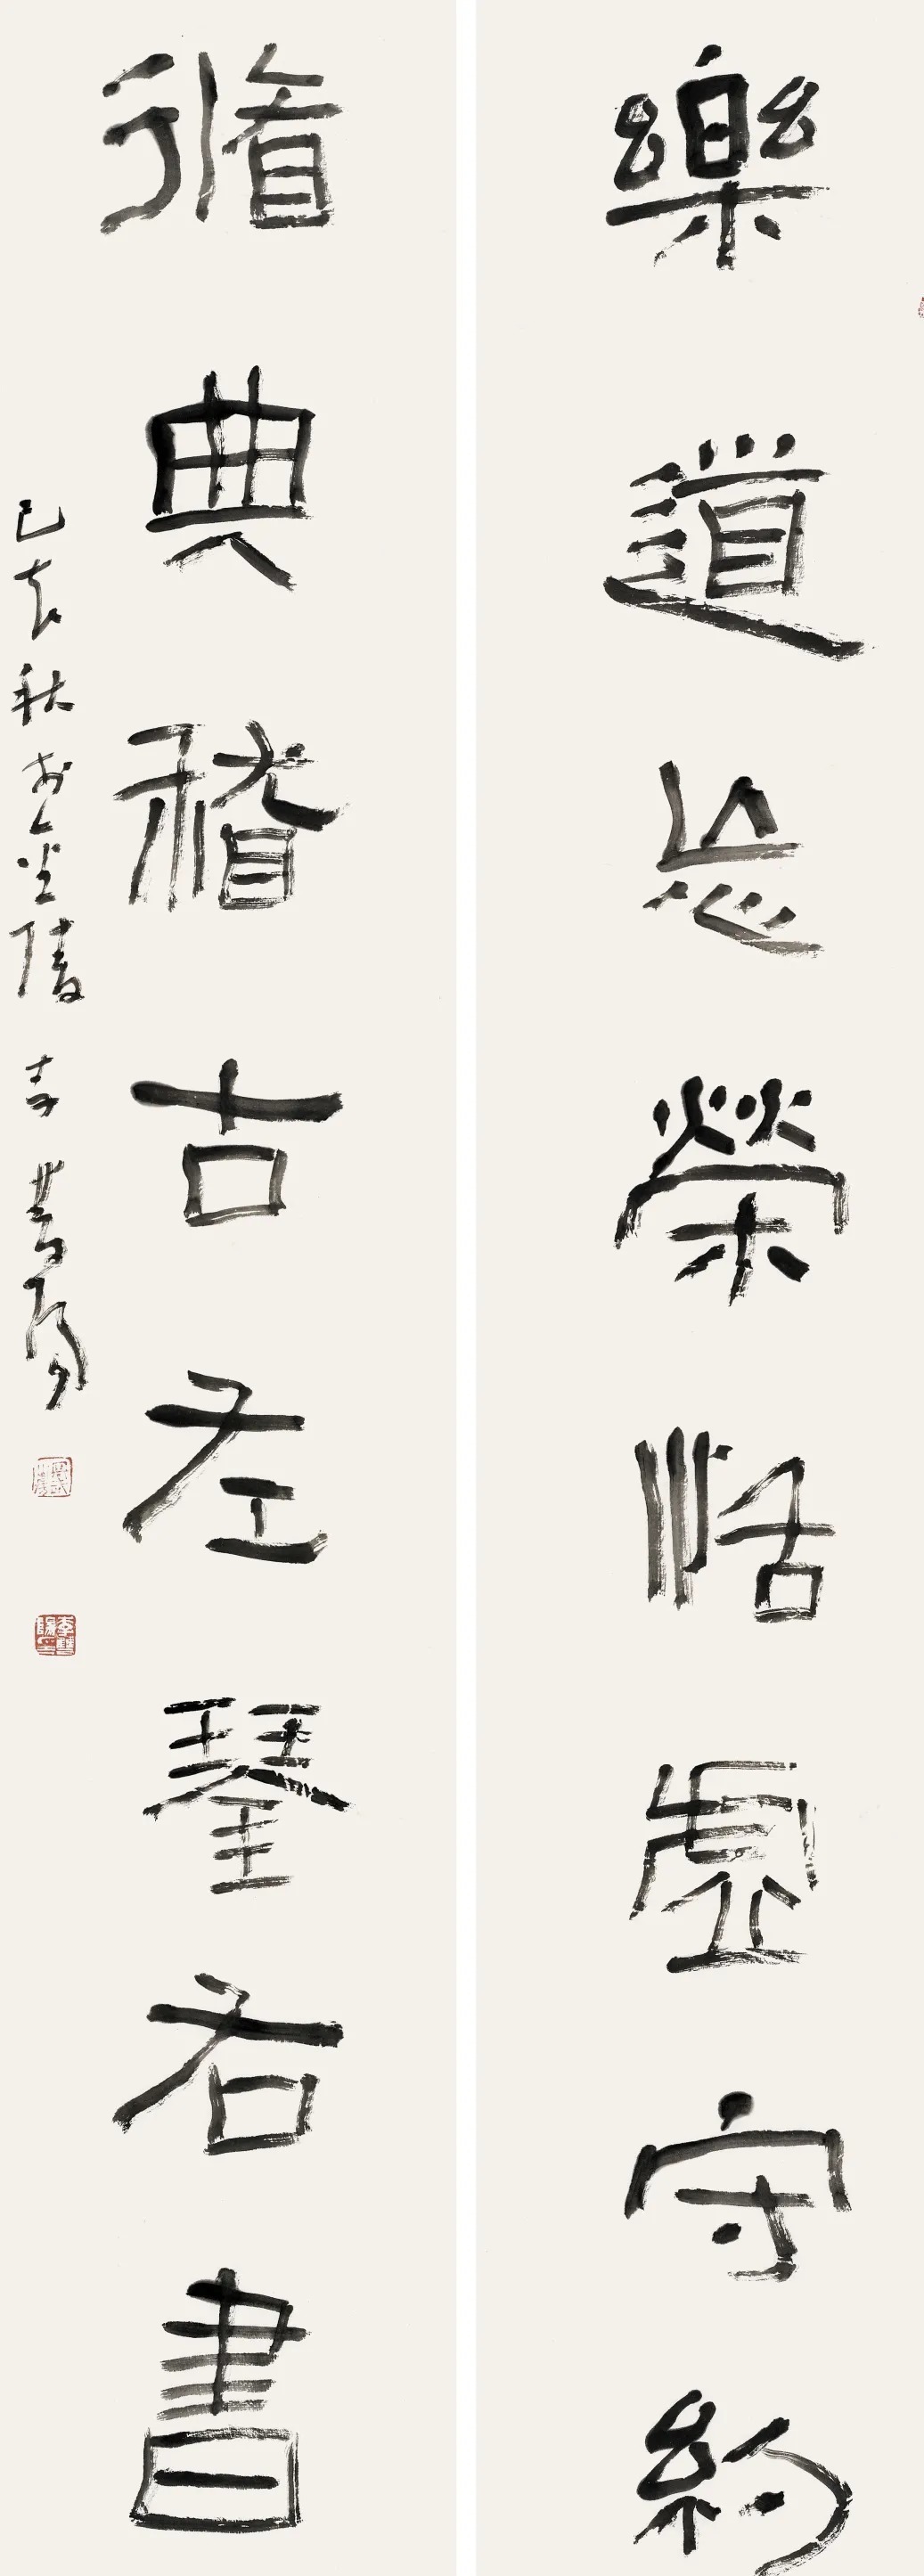 樂道忘榮恬虛守約
循典稽古左琴右書
己亥秋於金陵李雙陽